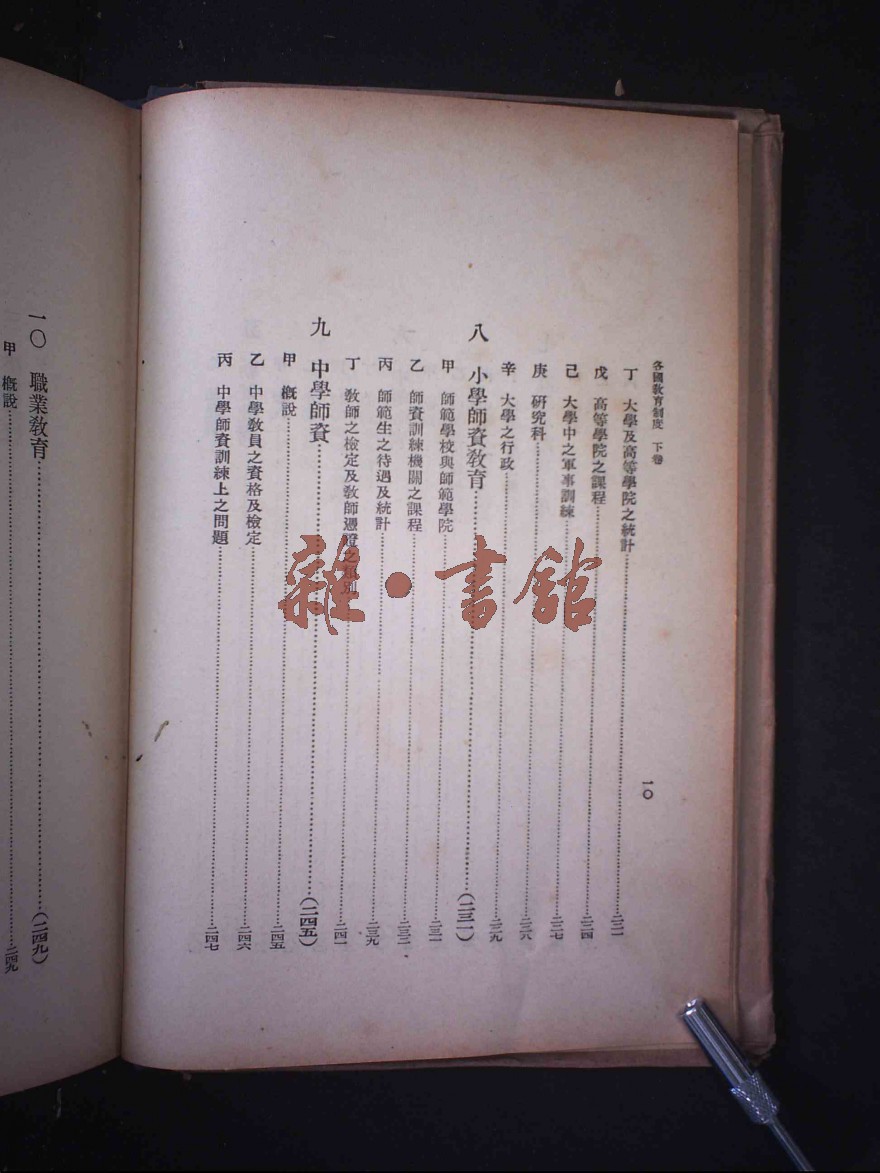 各國教育制度 下卷
一〇
丁 大學及高等學院之統計……二二一
戊 高等學院之課程……二二四
己 大學中之軍事訓練……二二七
庚 研究科……二二八
辛 大學之行政……二二九
八 小學師資教育……(二三一)
甲 師範學校與師範學院……二三一
乙 師資訓練機關之課程……二三二
丙 師範生之待遇及統計……二三九
丁 教師之檢定及教師憑證之 別……二四一
九 中學師資……(二四五)
甲 概說……二四五
乙 中學教員之資格及檢定……二四六
丙 中學師資訓練上之問題……二四七
一〇 職業教育……(二四九)
甲 概說……二四九
雜·書館